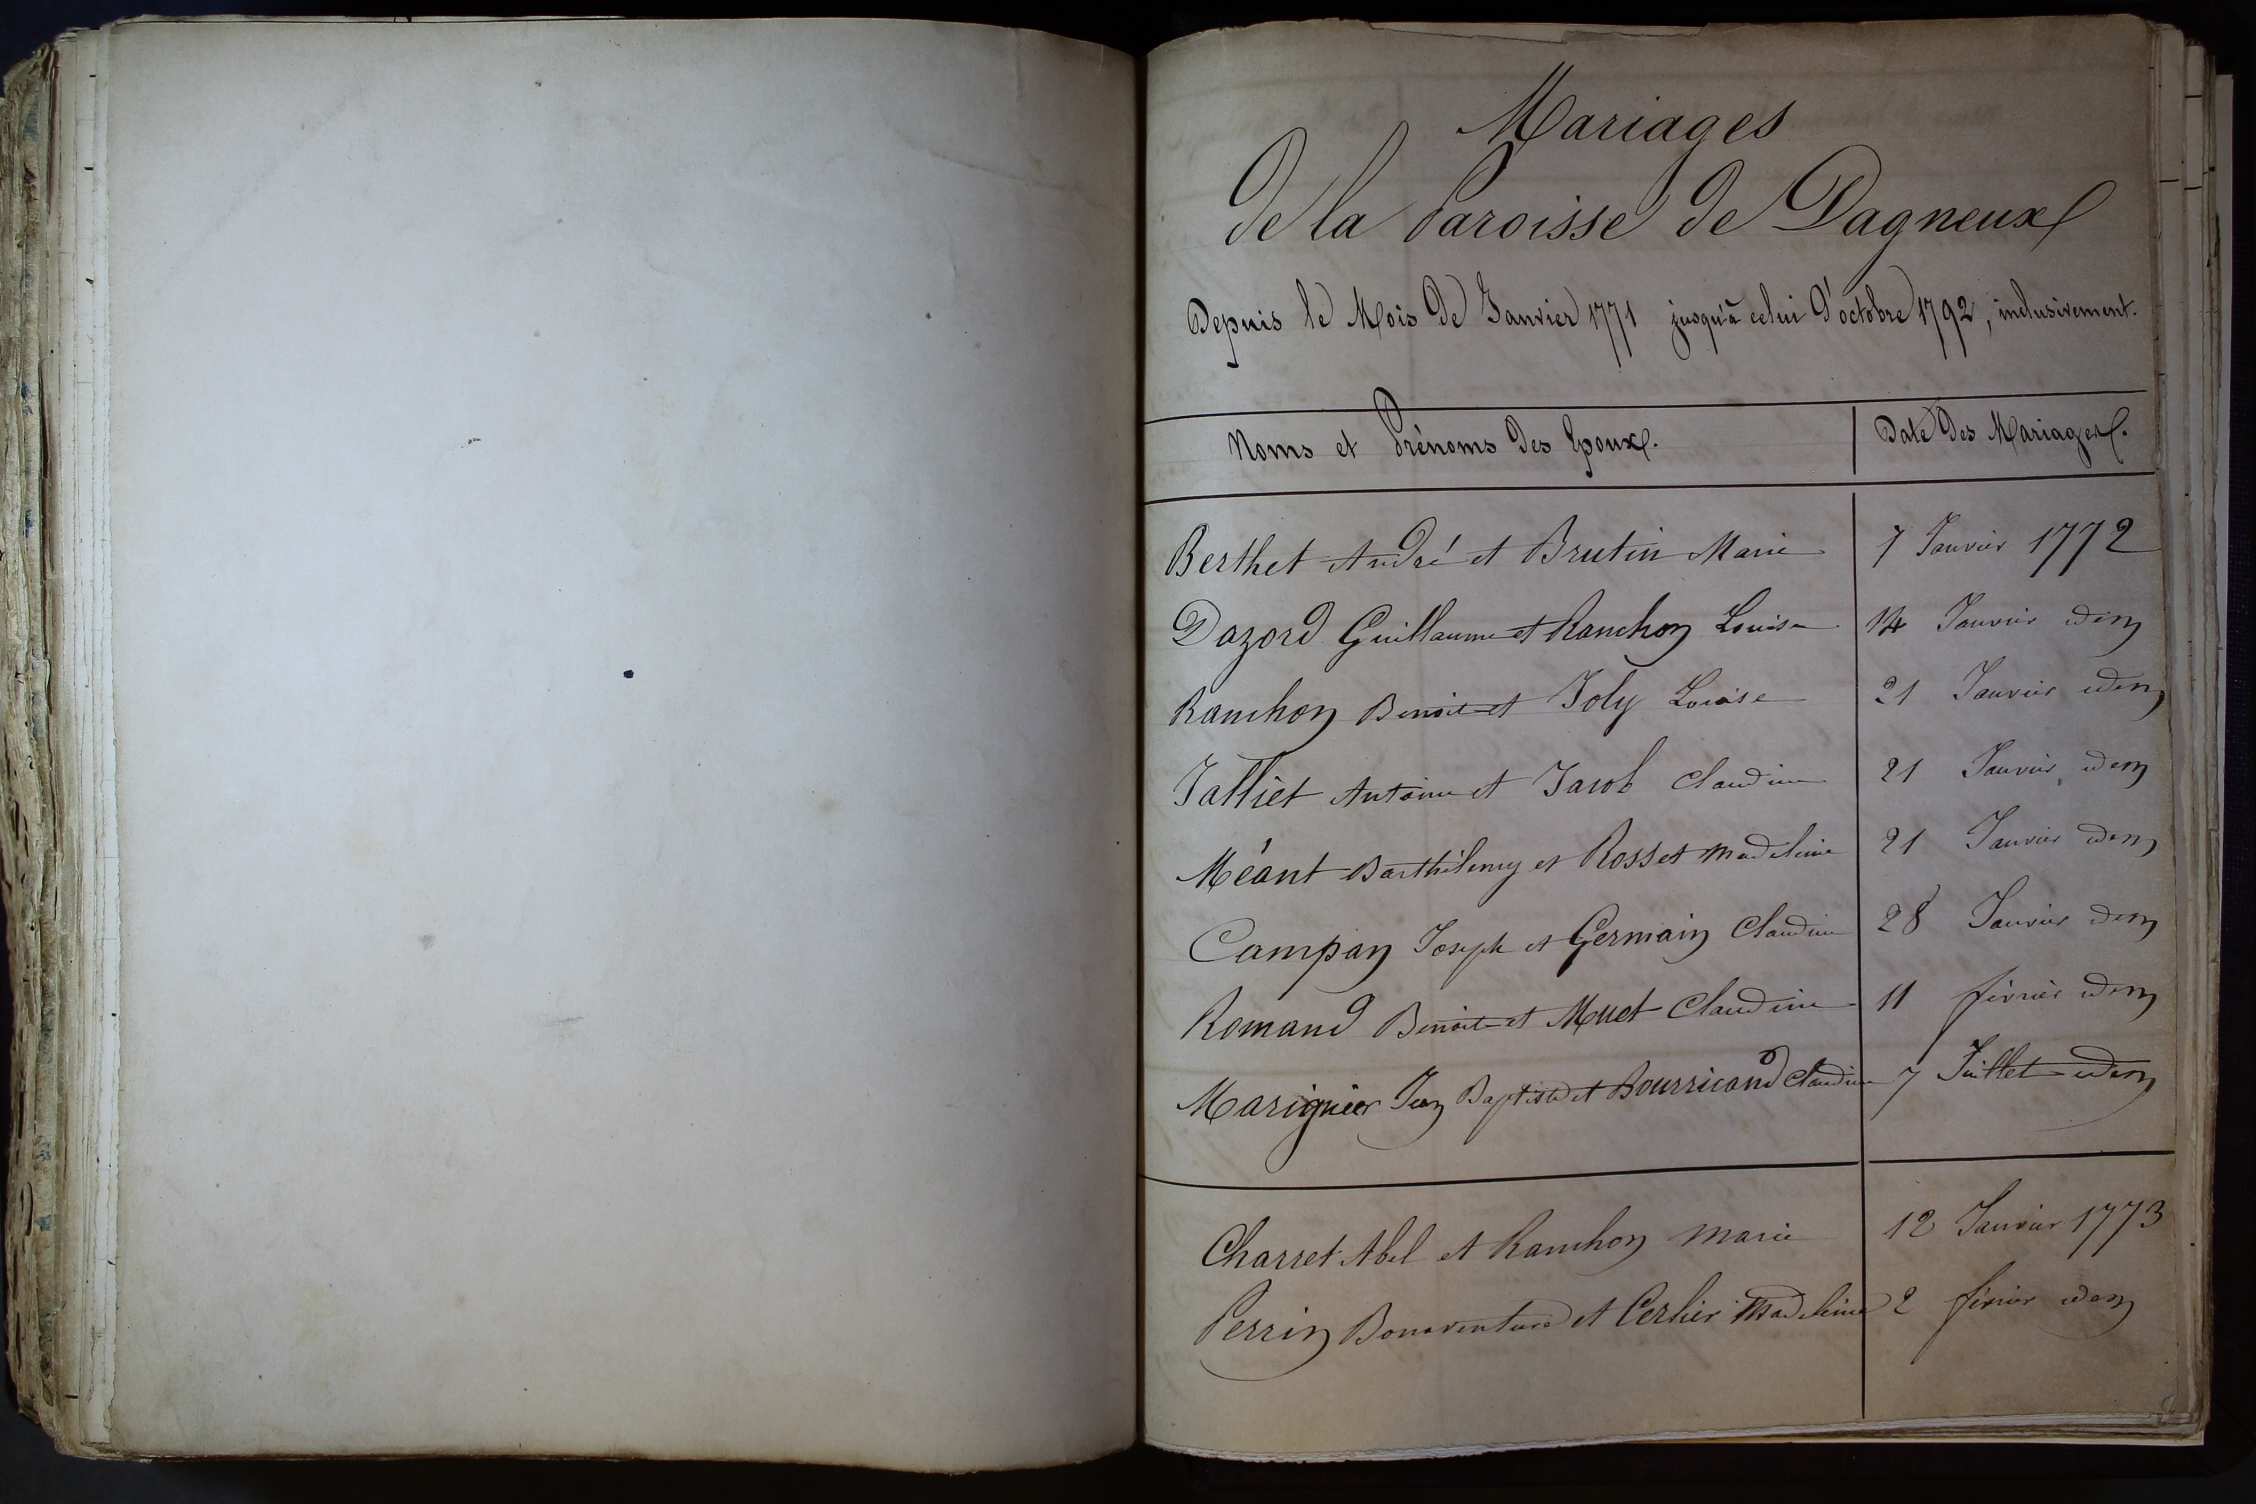 Mariages
de la Paroisse de Dagneux
Depuis le Mois de Janvier 1771 jusqu'à celui d'octobre 1792, inclusivement.
Noms et Prénoms des Epoux. Date des Mariages.
Berthet André et Brutin Marie 7 Janvier 1772
Dazord Guillaume et Ranchon Louise 14 Janvier idem
Ranchon Benoit et Joly Louise 21 Janvier idem
Jalliet Antoine et Jacob Claudine 21 Janvier idem
Méant Barthélemy et Rosset Madeleine 21 Janvier idem
Campan Joseph et Germain Claudine 28 Janvier idem
Romand Benoit et Muet Claudine 11 février idem
Marignier Jean Baptiste et Bourricand Claudine 7 Juillet idem
Charret Abel et Ranchon Marie 12 Janvier 1773
Perrin Bonaventure et Cerlier Madeleine 2 février idem